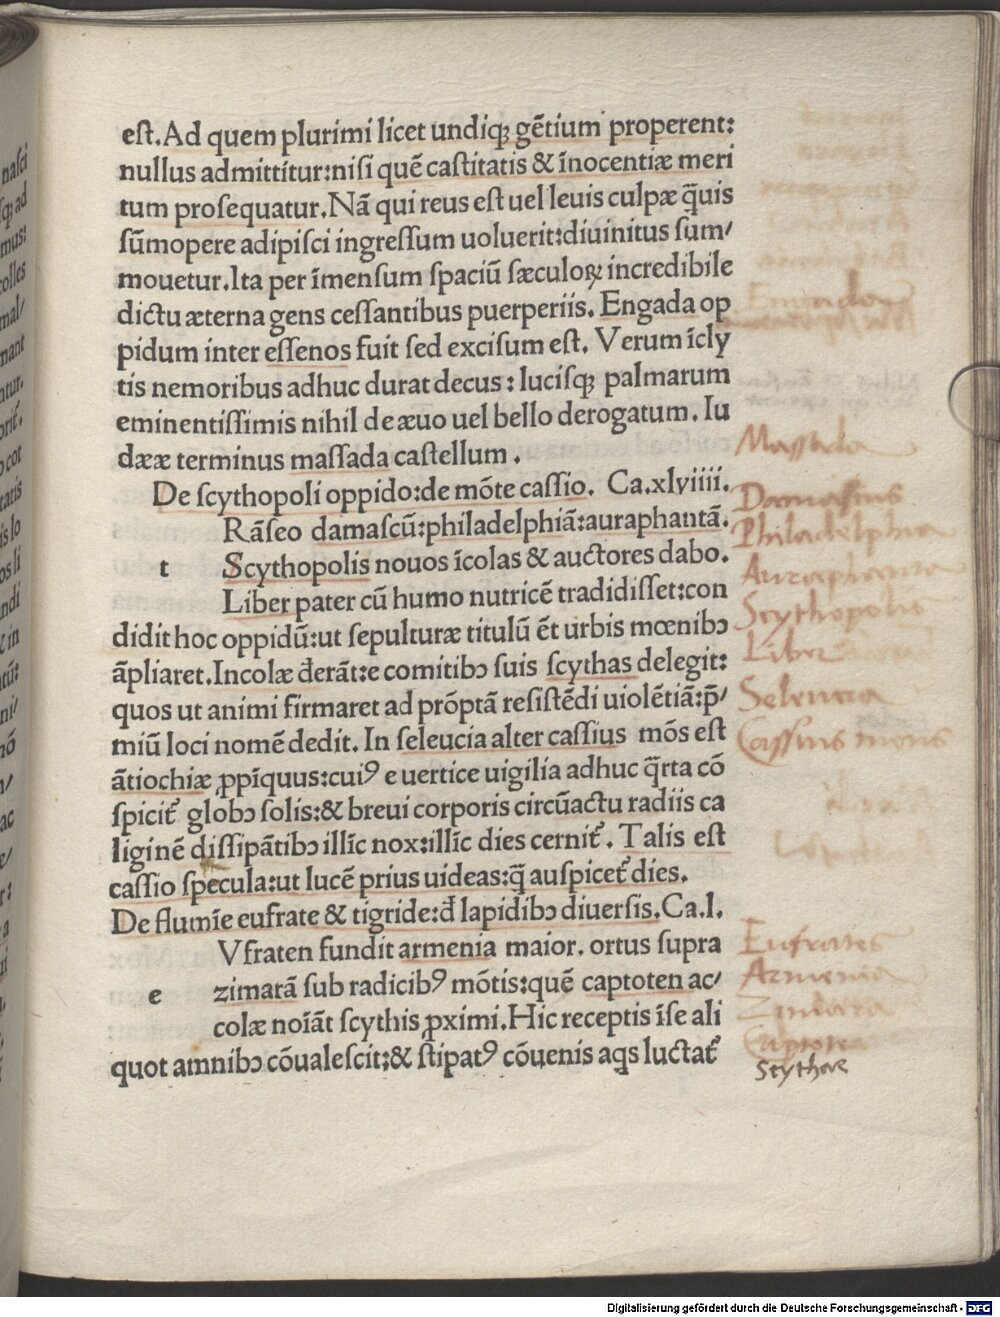 est. Ad quem plurimi licet undiqꝫ gẽtium properent:
nullus admittitur: nisi quẽ castitatis & ĩnocentiæ meri
tum prosequatur. Nã qui reus est uel leuis culpæ q̃uis
sũmopere adipisci ingressum uoluerit: diuinitus sum/
mouetur. Ita per ĩmensum spaciũ sæculoꝝ incredibile
dictu æterna gens cessantibus puerperiis. Engada op
pidum inter essenos fuit sed excisum est. Verum ĩcly
tis nemoribus adhuc durat decus: lucisqꝫ palmarum
eminentissimis nihil de æuo uel bello derogatum. Iu
dææ terminus massada castellum.
De scythopoli oppido: de mõte cassio. Ca. xlviiii.
Rãseo damascũ: philadelphiã: auraphantã.
t Scythopolis nouos ĩcolas & auctores dabo.
Liber pater cũ humo nutricẽ tradidisset: con
didit hoc oppidũ: ut sepulturæ titulũ ẽt urbis mœnibꝰ
ãpliaret. Incolæ deerãt: e comitibꝰ suis scythas delegit:
quos ut animi firmaret ad prõptã resistẽdi uiolẽtiã: p̃/
miũ loci nomẽ dedit. In seleucia alter cassius mõs est
ãtiochiæ ꝓpĩquus: cuiꝰ e uertice uigilia adhuc q̃rta cõ
spicit̃ globꝰ solis: & breui corporis circũactu radiis ca
liginẽ dissipãtibꝰ illĩc nox: illĩc dies cernit̃. Talis est
cassio specula: ut lucẽ prius uideas: q̃ auspicet̃ dies.
De flumĩe eufrate & tigride: đ lapidibꝰ diuersis. Ca. l.
Vfraten fundit armenia maior. ortus supra
e zimarã sub radicibꝰ mõtis: quẽ captoten ac/
colæ noĩãt scythis ꝓximi. Hic receptis ĩse ali
quot amnibꝰ cõualescit: & stipatꝰ cõuenis aq̃s luctat̃
Massada
Damascus
Philadelphia
Auraphanta
Scythopolis
Liber
Seleucia
Cassius mons
Eufrates
Armenia
Zimara
Captotes
Scythae
nasci
qꝫ ad
mus:
colles
mal/
mant
Digitalisierung gefördert durch die Deutsche Forschungsgemeinschaft - DFG